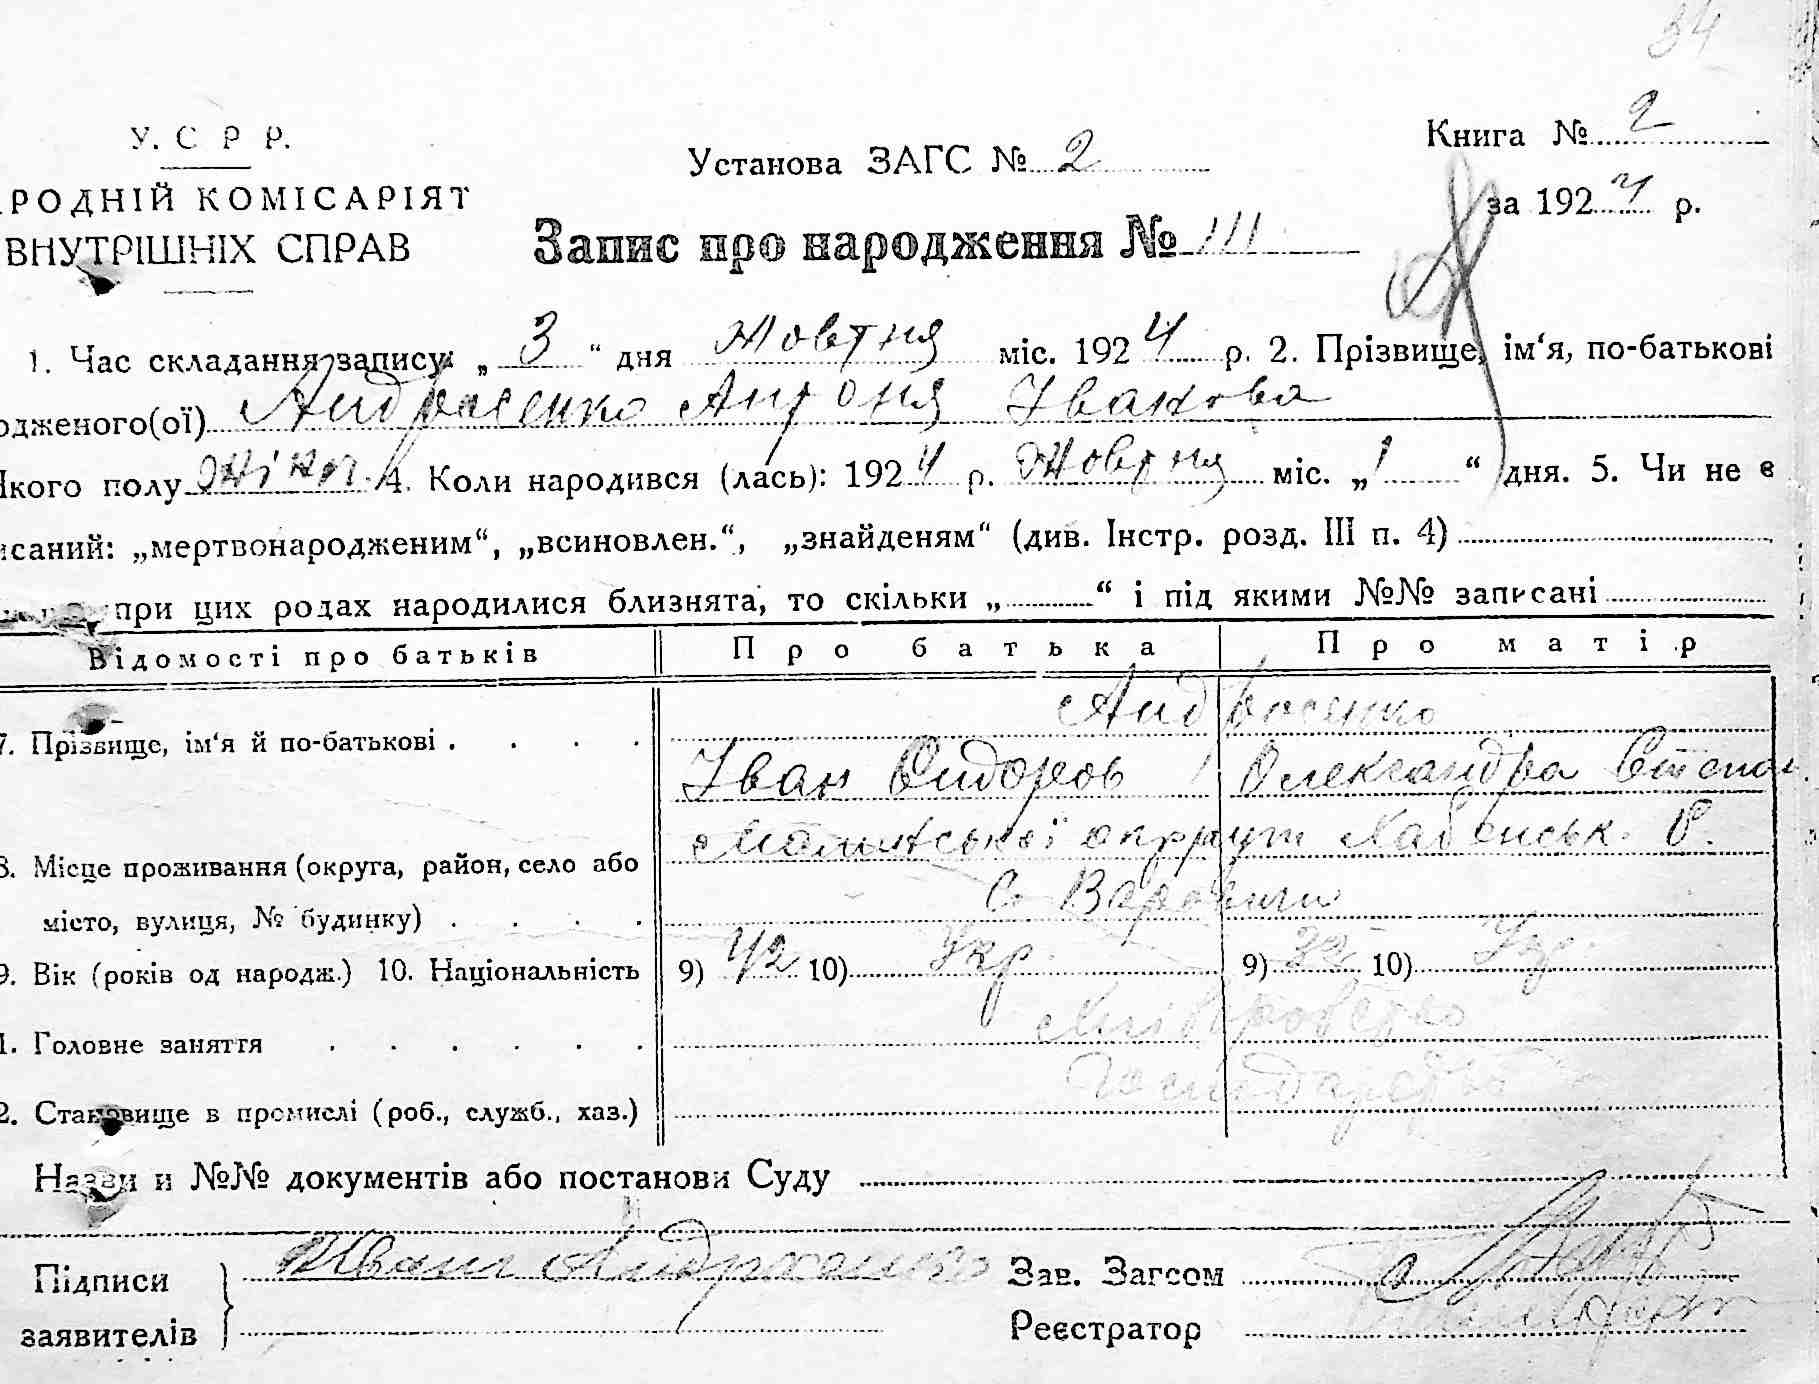 34
У. С Р Р.
Книга № 2
Установа ЗАГС № 2
РОДНІЙ КОМІСАРІЯТ
за 1924 р.
ВНУТРІШНІХ СПРАВ
Запис про народження № 111
1. Час складання запису: „ 3 “ дня Жовтня міс. 1924 р. 2. Прізвище, ім‘я, по-батькові
одженого(ої) Андросенко Антоня Іванова
Якого полу жіноч. 4. Коли народився (лась): 1924 р. Жовтня міс. „ 1 “ дня. 5. Чи не є
исаний: „мертвонародженим“, „всиновлен.“, „знайденям“ (див. Інстр. розд. III п. 4)
при цих родах народилися близнята, то скільки „ “ і під якими №№ записані
Відомості про батьків Про батька Про матір
Андросенко
7. Прізвище, ім‘я й по-батькові
Іван Сидоров Олександра Степан
Малинської округи Хабенськ. Р.
8. Місце проживання (округа, район, село або
с. Варовичи
місто, вулиця, № будинку)
9. Вік (років од народж.) 10. Національність 9) 42 10) Укр. 9) 32 10) Укр.
Хліборобство
1. Головне заняття
Господарство
2. Становище в промислі (роб., служб., хаз.)
Назви и №№ документів або постанови Суду
Підписи Іван Зав. Загсом
заявителів Реєстратор